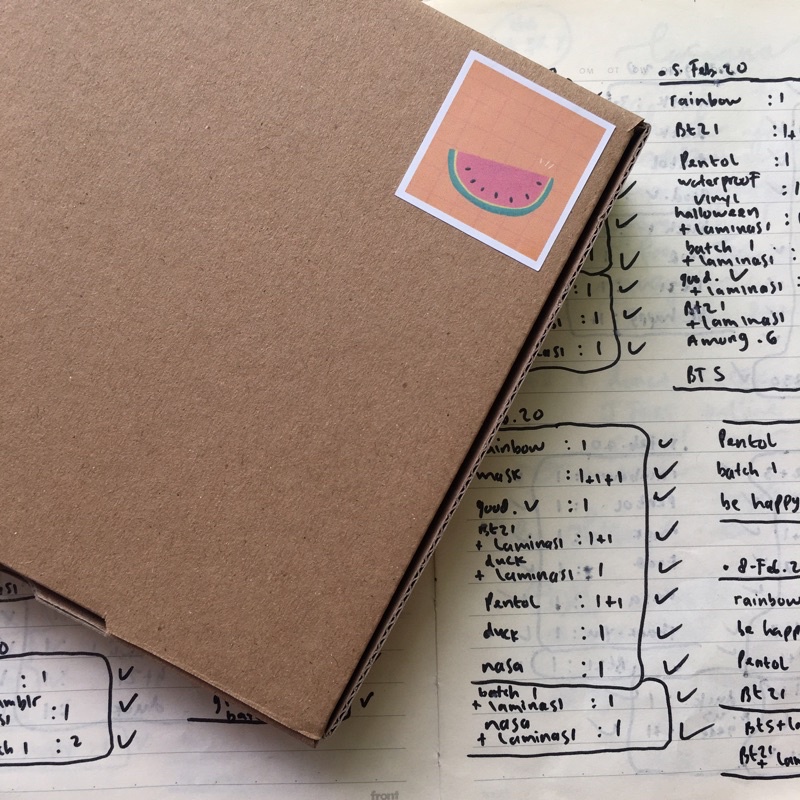 • 5. Feb. 20
rainbow : 1
Bt21 : 1+
Pentol : 1
waterproof
vinyl : 1
halloween
+ laminasi : 1
batch 1
+ laminasi :
good. ✓
+ laminasi :
Bt21
+ laminasi
Among . G
BTS
1
: 1
: 1
: 1
.20
ainbow : 1 ✓
mask : 1+1+1 ✓
good. ✓ : 1 ✓
Bt21
+ laminasi : 1+1 ✓
duck
+ laminasi : 1 ✓
Pentol : 1+1 ✓
duck : 1 ✓
nasa : 1 ✓
batch 1
+ laminasi : 1 ✓
nasa
+ laminasi : 1 ✓
Pentol
batch 1
be happy
• 8-Feb. 2
rainbow
be happ
Pentol
Bt21
Bts+la
Bt21
+ lam
: 1 ✓
: 1 ✓
: 2 ✓
front